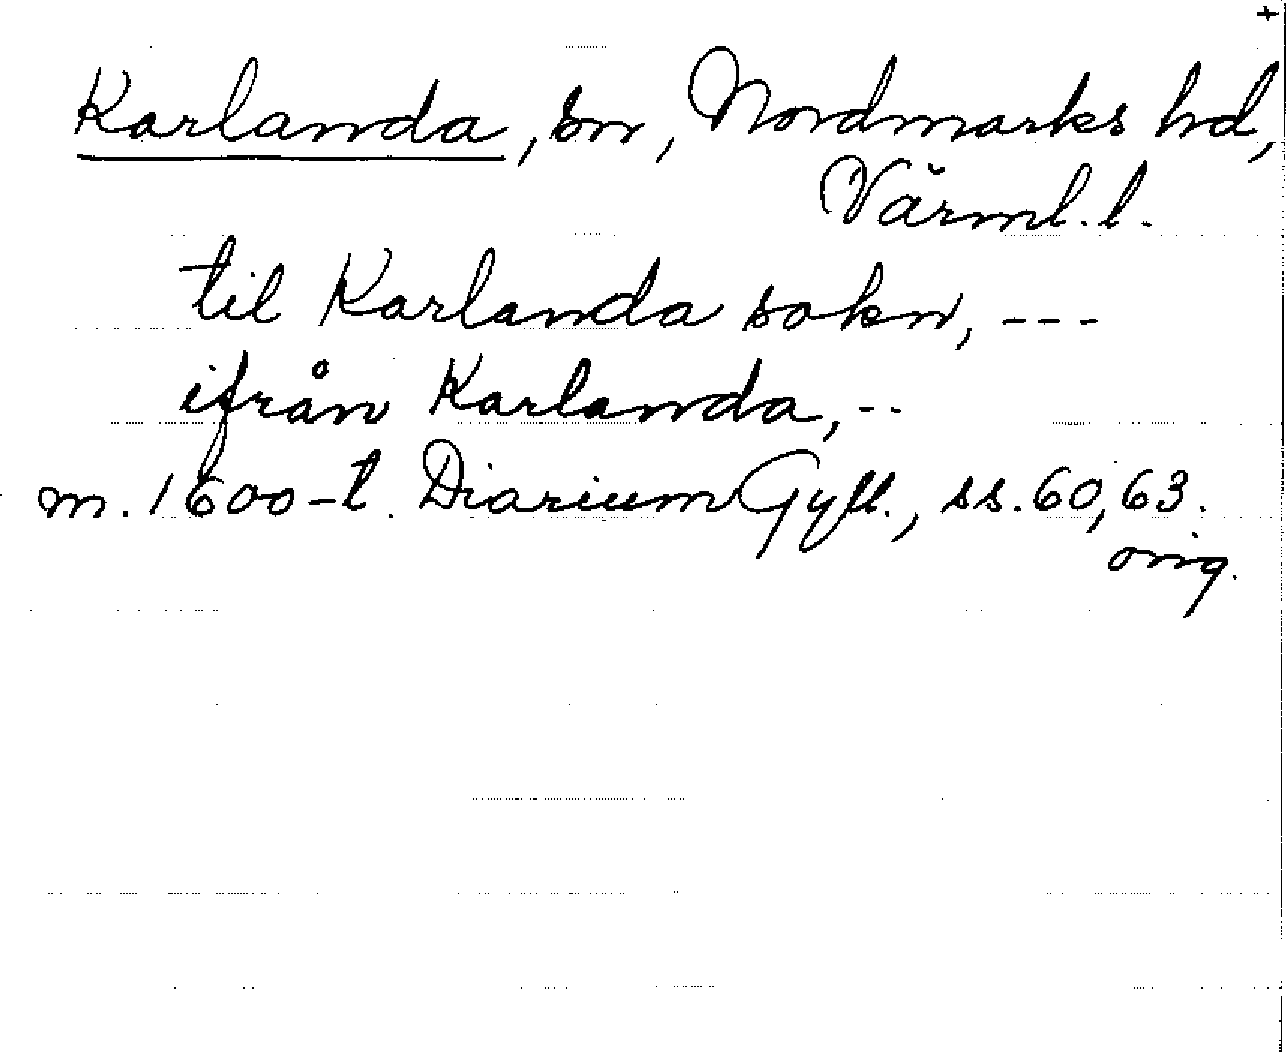 +
Karlanda, sn, Nordmarks hd,
Värml. l.
til Karlanda sokn, ---
ifrån Karlanda, --
m. 1600-t. Diarium Gyll., ss. 60, 63.
orig.